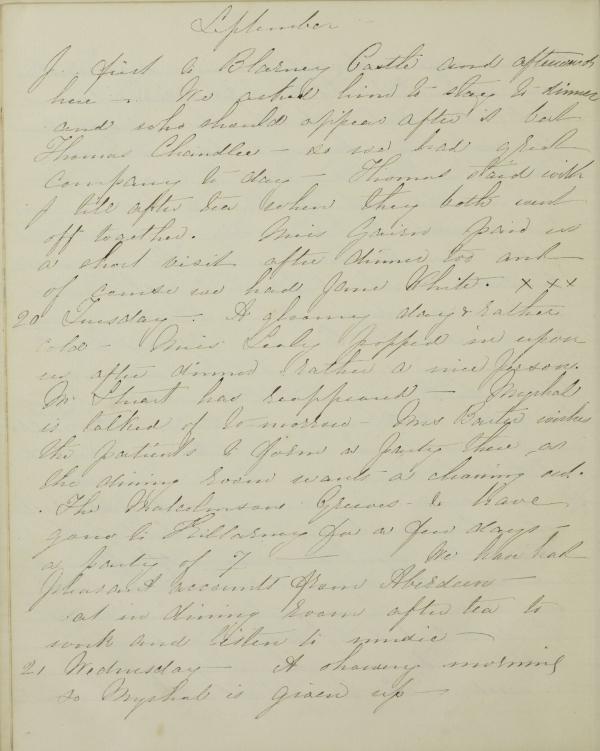 September
J. first to Blarney Castle and afterwards
here - We asked him to stay to dinner
and who should appear after it but
Thomas Chandlee - so we had great
company to day - Thomas staid with
J till after tea when they both went
off together. Miss paid us
a short visit after dinner too and
of course we had Jane White. x x x
20 Tuesday - A gloomy day & rather
cold - Miss popped in upon
us after dinner rather a nice person.
Mr Stuart has reappeared - Myshal
is talked of to-morrow - Mrs wishes
the patients to form a party there as
the dining room wants a cleaning out.
The Malcolmson Greeves - & have
gone to Killarney for a few days -
a party of 7 - We have had
pleasant accounts from Aberdeen -
sat in dining room after tea to
work and listen to music -
21 Wednesday - A showery morning
so Myshal is given up -